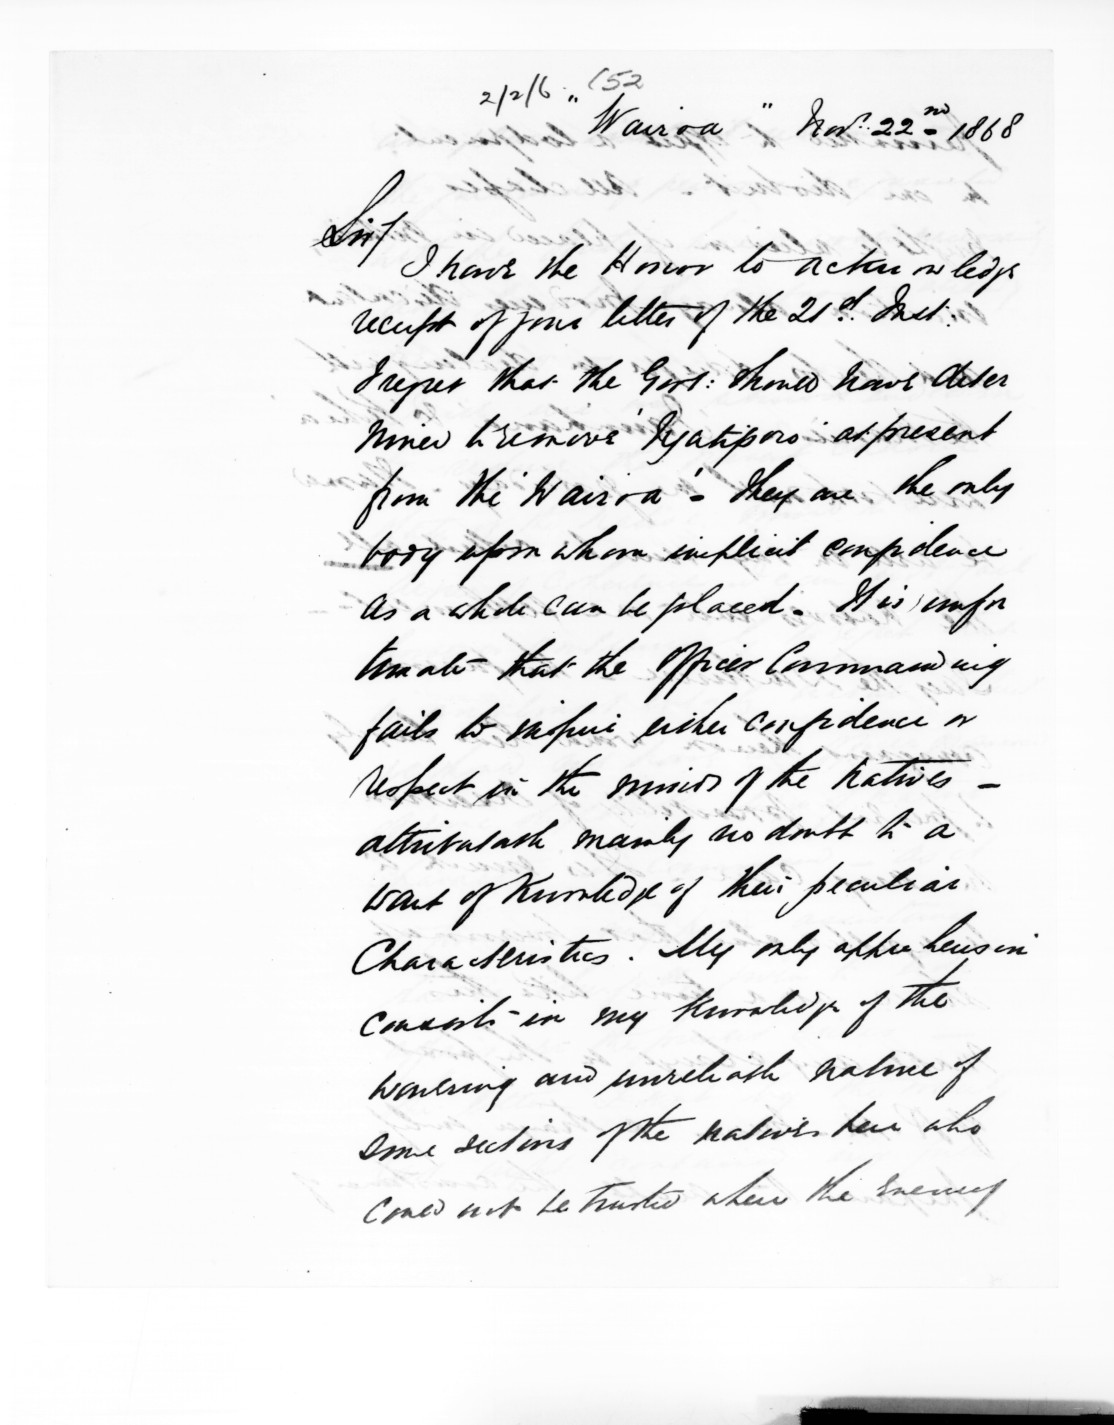 2/2/6 152
"Wairoa" Nov: 22nd 1868
Sir/
I have the Honor to acknowledge
receipt of your letter of the 21st. Inst:
I regret that the Govt: should have deter
mined to remove 'Ngatiporo' at present
from the 'Wairoa' - They are the only
body upon whom implicit confidence
as a whole can be placed - It is unfor
tunate that the Officer Commanding
fails to inspire either confidence or
respect in the minds of the Natives -
attributable mainly no doubt to a
want of Knowledge of their peculiar
Characteristics. My only apprehension
consists in my Knowledge of the
wavering and unreliable nature of
some sections of the natives here who
could not be trusted where the Enemy